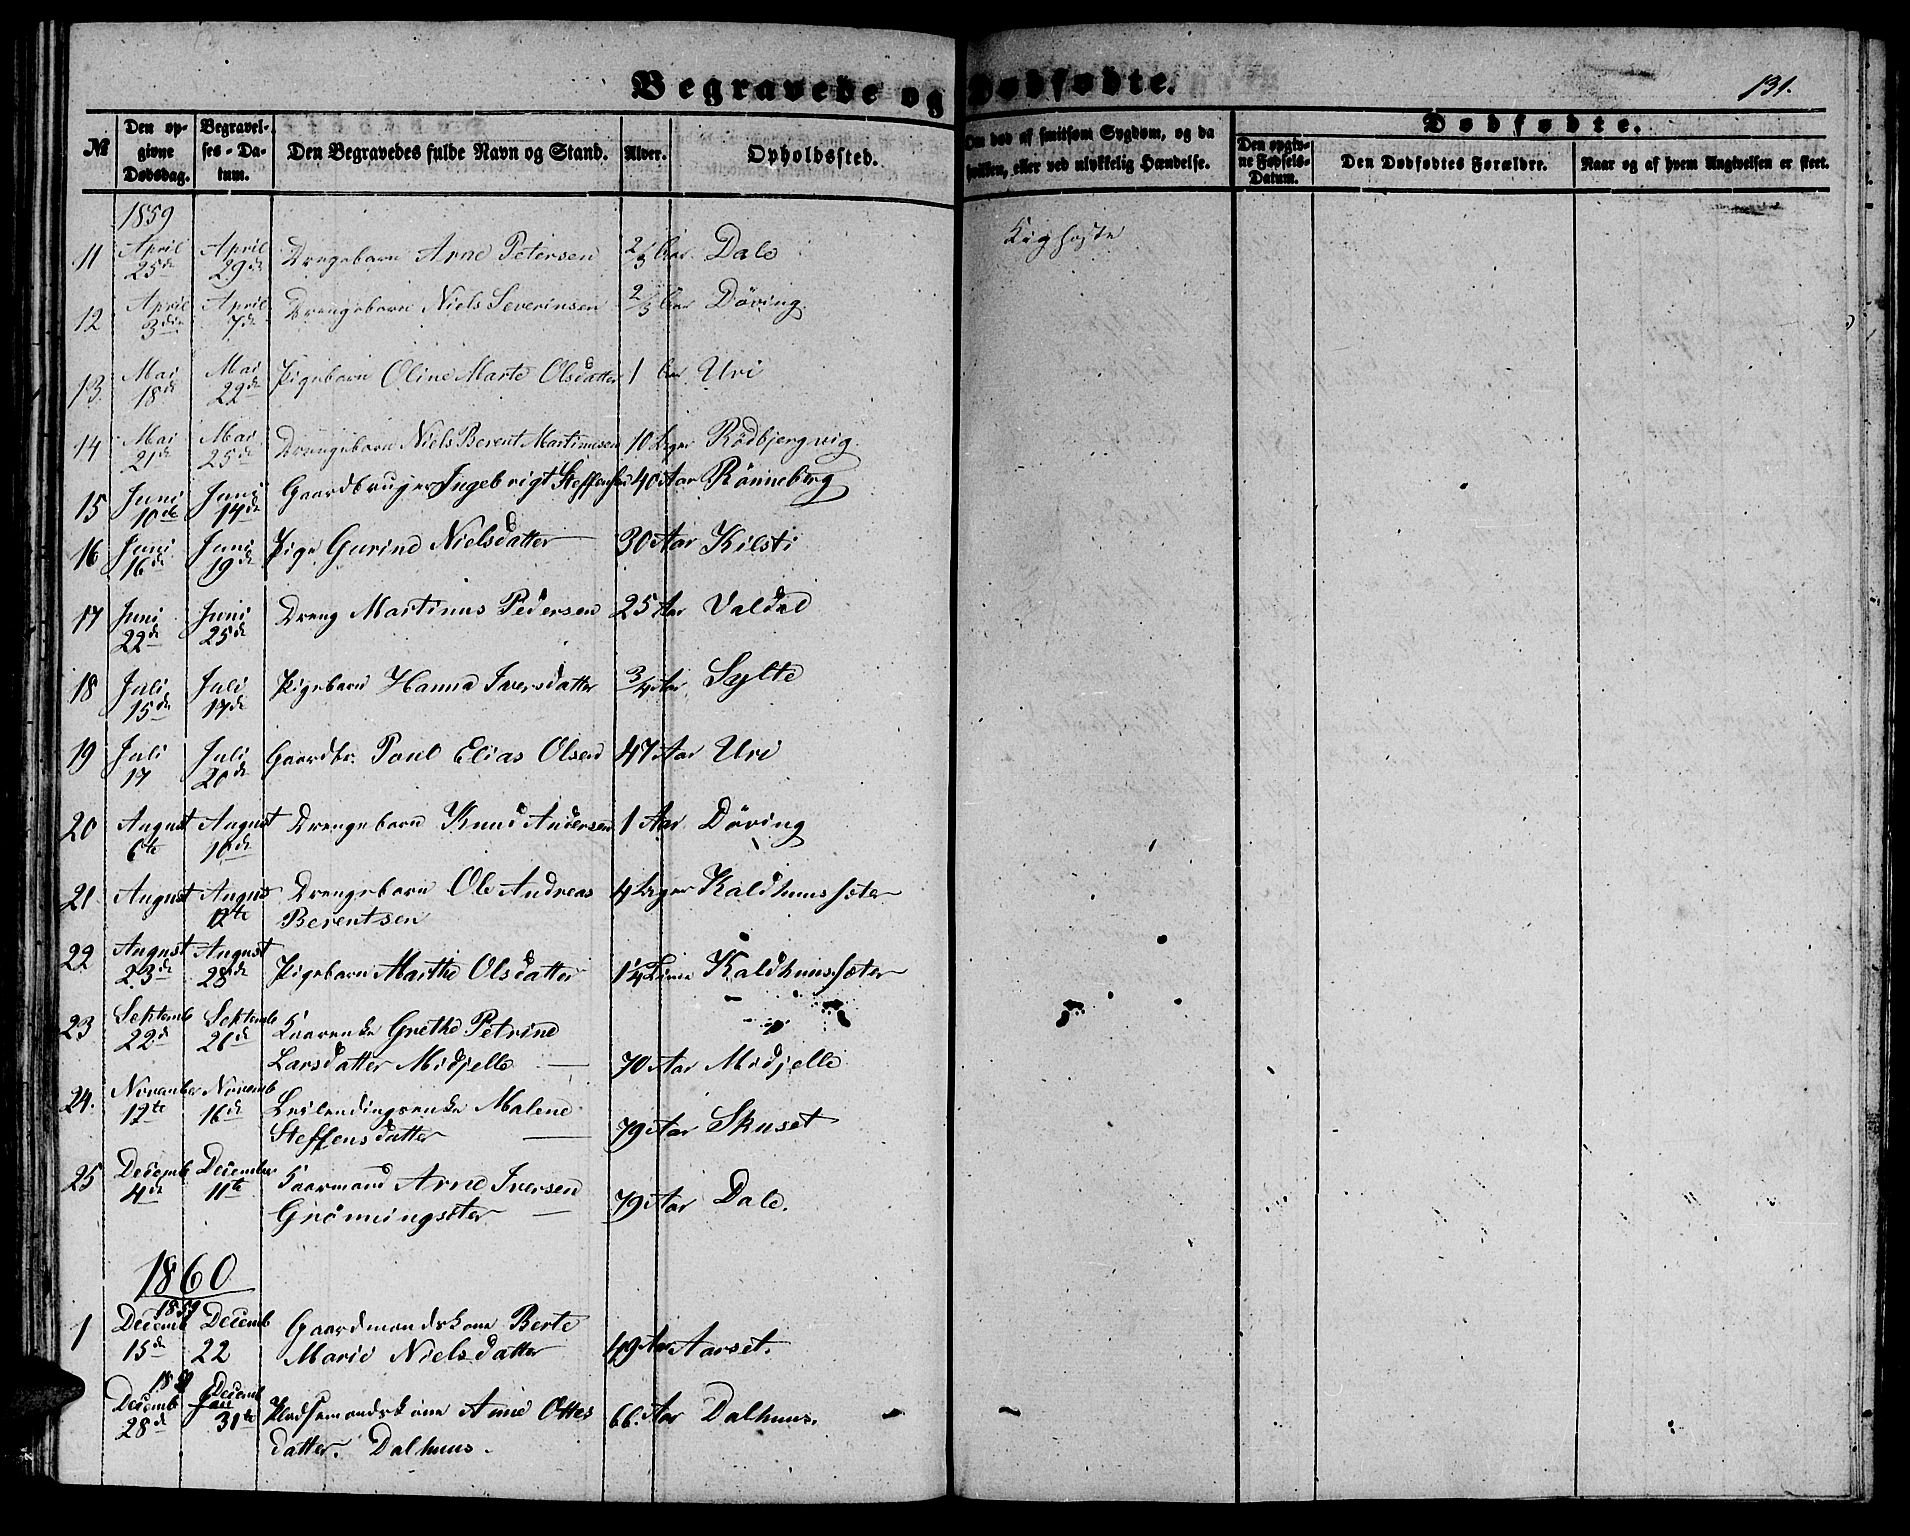 Begravede og Dødfødte.
131.
№ | Den opgivne Dødsdag. | Begravelses-Datum. | Den Begravedes fulde Navn og Stand. | Alder. | Opholdssted. | Om død af smitsom Sygdom, og da hvilken, eller ved ulykkelig Hændelse. | Dødfødte. | Den opgivne Fødsels-Datum. | Den Dødfødtes Forældre. | Naar og af hvem Angivelsen er skeet.
1859
11 | April 25de | April 29de | Drengebarn Arne Petersen | 2/3 Aar | Dale | Kighoste
12 | April 3die | April 7de | Drengebarn Niels Severinsen | 2/3 Aar | Döving
13. | Mai 18de | Mai 22de | Pigebarn Oline Marte Olsdatter | 1 Aar | Uri
14 | Mai 21de | Mai 25de | Drengebarn Niels Berent Martinusen | 10 Uger | Rödbjergvig
15 | Juni 10de | Juni 14de | Gaardbruger Ingebrigt Steffensen | 40 Aar | Rönneberg
16 | Juni 16de | Juni 19de | Pige Gurine Nielsdatter | 30 Aar | Kilsti
17 | Juni 22de | Juni 25de | Dreng Martinus Pedersen | 25 Aar | Valdal
18 | Juli 15de | Juli 17de | Pigebarn Hanna Iversdatter | 3/4 Aar | Sylte
19 | Juli 17 | Juli 20de | Gaardbr. Poul Elias Olsen | 47 Aar | Uri
20 | August 6te | August 10de | Drengebarn Knud Andersen | 1 Aar | Döving
21 | August | August 12te | Drengebarn Ole Andreas
Berentsen | 4 Uger | Kaldhunssæter
22 | August 23de | August 28de | Pigebarn Marthe Olsdatter | 14 | Kaldhunssæter
23 | Septemb 22de | Septemb 26de | Kaarenke Grethe Petrine
Larsdatter Midjelle | 70 Aar | Midjelle
24. | November 12te | Novemb 16de | Leilendingsenke Malene
Steffensdatter | 79 Aar | Skuset
25 | Decemb 4de | December 11te | Kaarmand Arne Iversen
Grönningsæter | 79 Aar | Dale.
1860
1 | 1859 Decemb 15de | Decemb 22 | Gaardmandskone Berte
Marie Nielsdatter | 49 Aar | Aarset.
1859 Decemb 28de | Decemb 31te | Pladsemandskone Anne Ottes
datter. Dalhuus. | 66. Aar | Dalhuus.